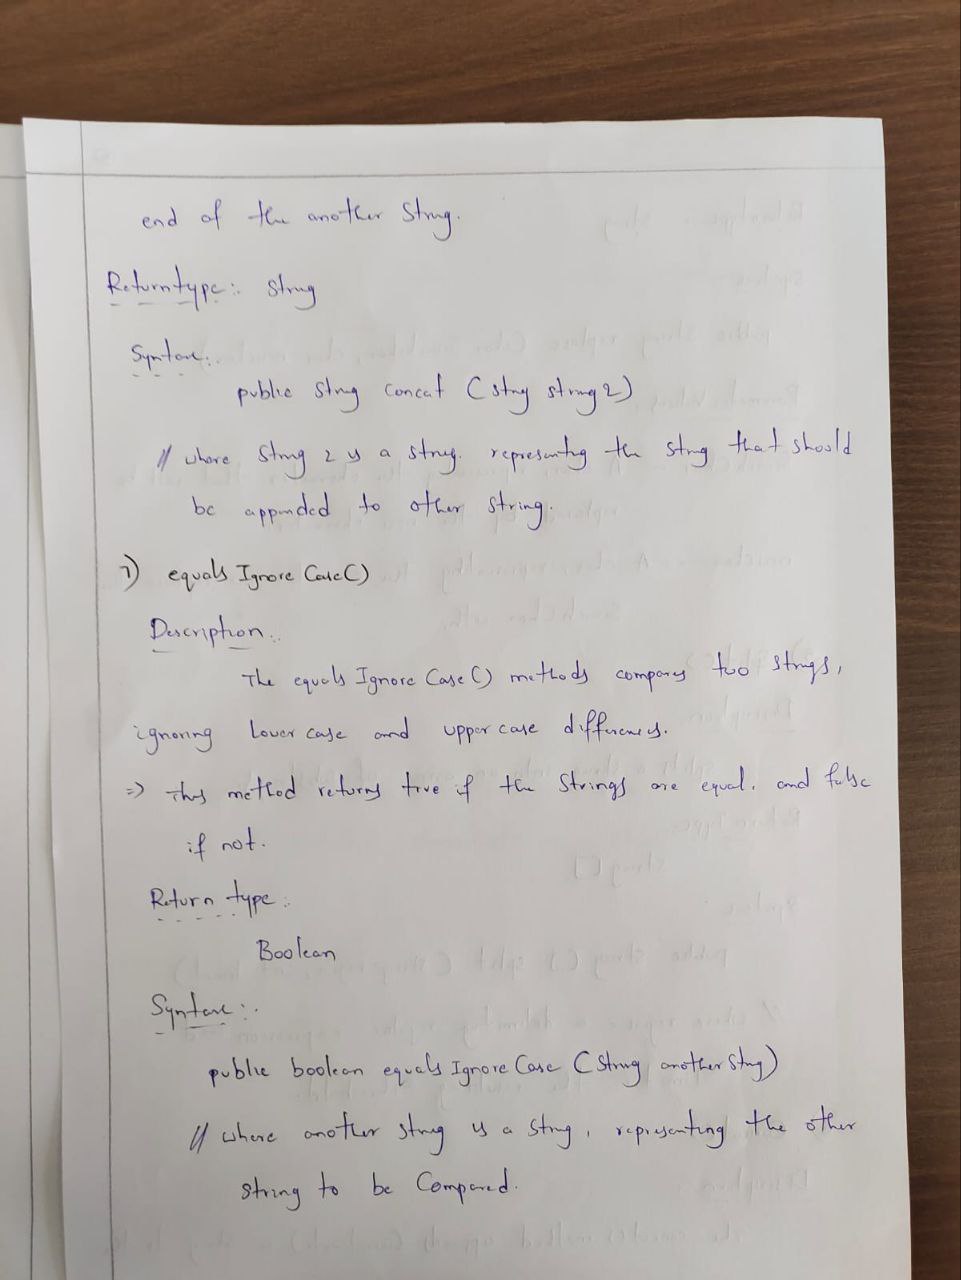 end of the another String.
Return type:- String
Syntax:-
public String concat (String string 2)
// where String 2 is a string. representing the string that should
be appended to other string.
7) equals Ignore Case()
Description:-
The equals Ignore Case () methods compares two strings,
ignoring lower case and upper case differences.
=> This method returns true if the strings are equal. and false
if not.
Return type:-
Boolean
Syntax:-
public boolean equals Ignore Case (String another String)
// where another string is a string, representing the other
string to be Compared.